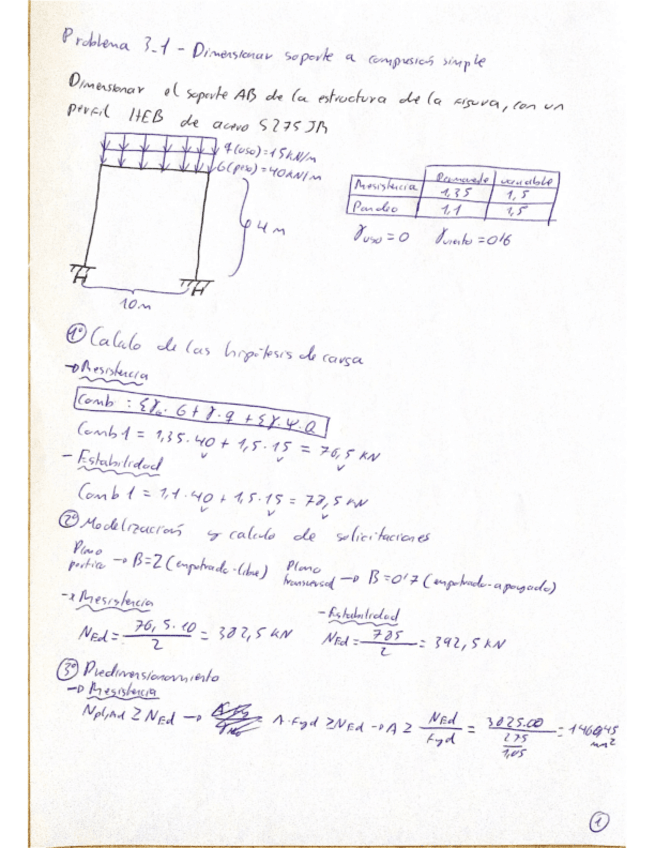 Problema 3-1 - Dimensionar soporte a compresión simple
Dimensionar el soporte AB de la estructura de la figura, con un
perfil HEB de acero S275JR
q(uso)=15kN/m
G(peso)=40kN/m
4m
10m
Permanente variable
Resistencia 1,35 1,5
Pandeo 1,1 1,5
γuso=0 γviento=0'6
1º Calculo de las hipótesis de carga
→ Resistencia
Comb: Σγ. G + γ.q + Σγ.Ψ.Q
Comb 1 = 1,35·40 + 1,5·15 = 76,5 kN
- Estabilidad
Comb 1 = 1,1·40 + 1,5·15 = 78,5 kN
2º Modelización y calculo de solicitaciones
Plano portico → B=2 (empotrado-libre) Plano transversal → B=0'7 (empotrado-apoyado)
- Resistencia - Estabilidad
NEd = 76,5·10 / 2 = 382,5 kN NEd = 785 / 2 = 392,5 kN
3º Predimensionamiento
→ Resistencia
Npl,Rd ≥ NEd → A·fyd ≥ NEd → A ≥ NEd / fyd = / 275 / 1,05 = mm²
1